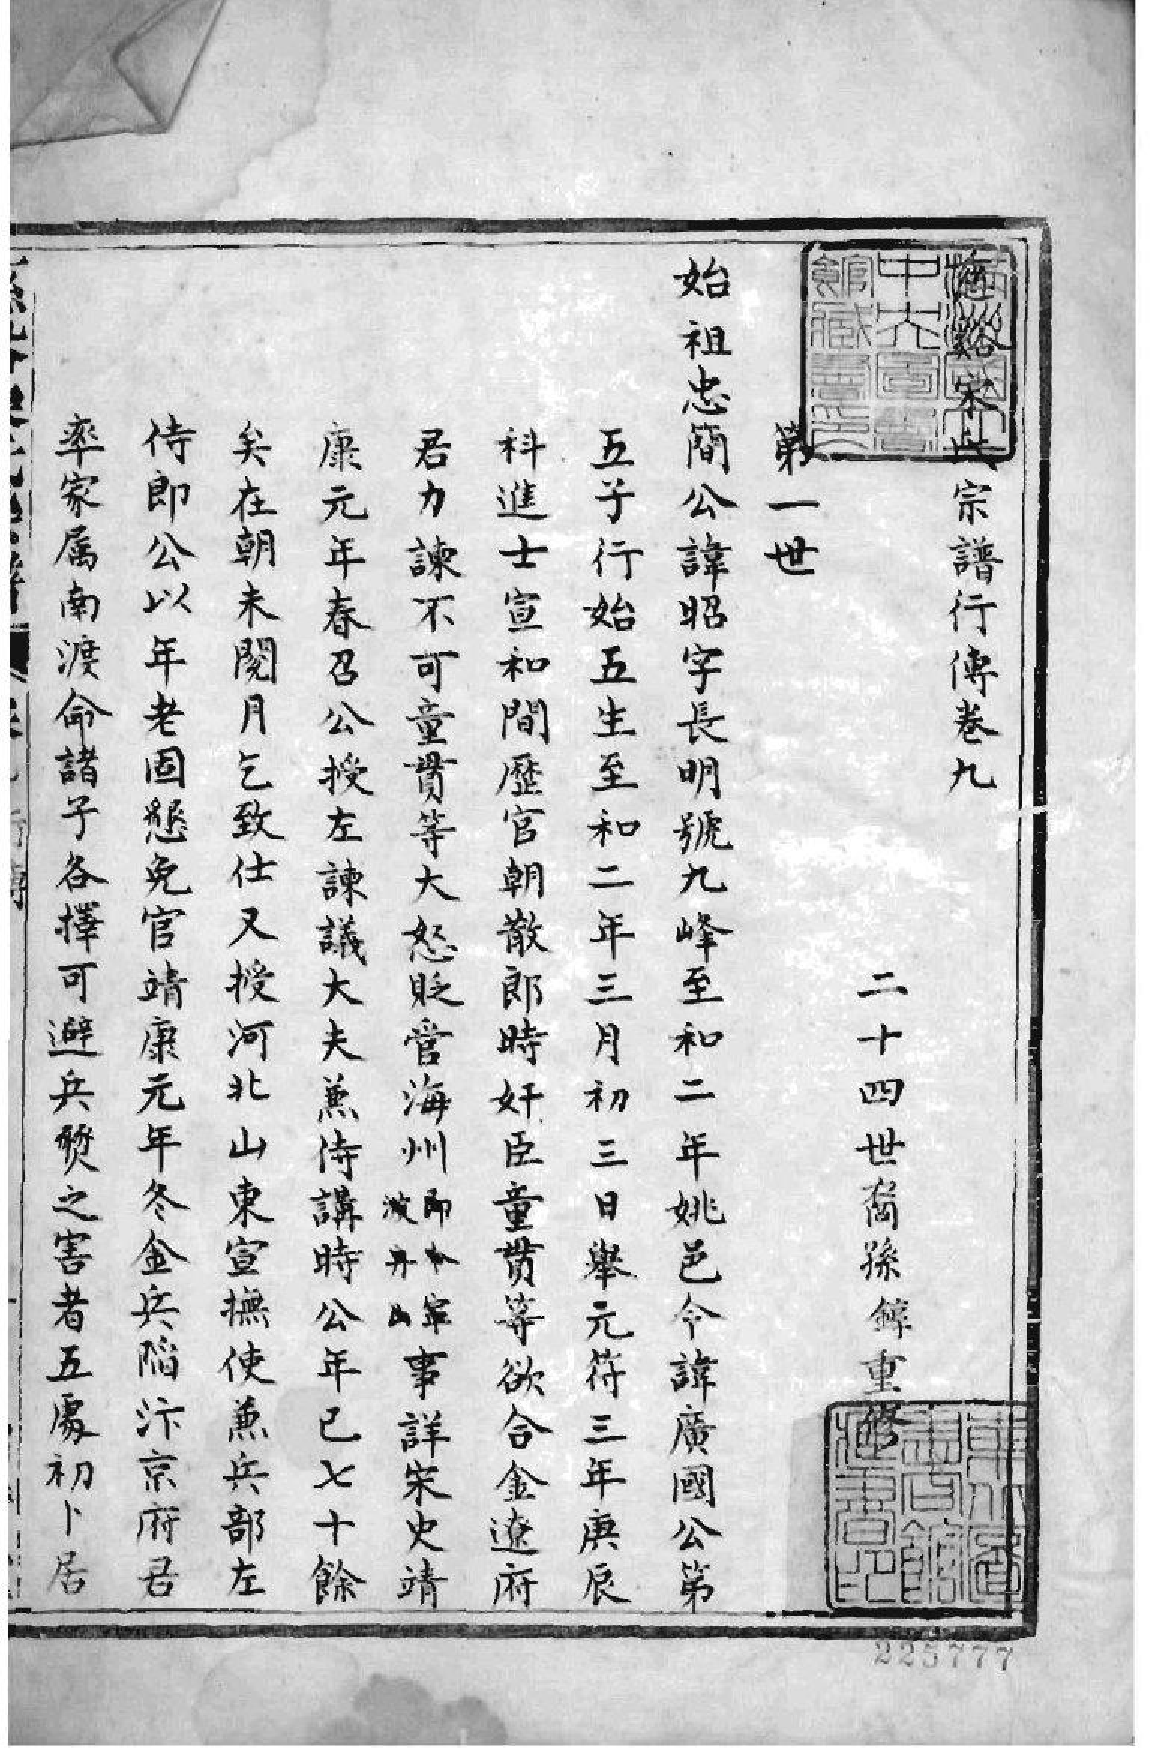 梅溪宋氏宗譜行傳卷九
二十四世裔孫鏵重修
第一世
始祖忠簡公諱昭字長明號九峰至和二年姚邑令諱廣國公第
五子行始五生至和二年三月初三日舉元符三年庚辰
科進士宣和間歷官朝散郎時奸臣童贯等欲合金遼府
君力諫不可童贯等大怒貶管海州即今寧波舟山事詳宋史靖
康元年春召公授左諫議大夫兼侍講時公年已七十餘
矣在朝未閱月乞致仕又授河北山東宣撫使兼兵部左
侍郎公以年老固懇免官靖康元年冬金兵陷汴京府君
率家属南渡命諸子各擇可避兵燹之害者五處初卜居
中央圖書館藏書印
225777